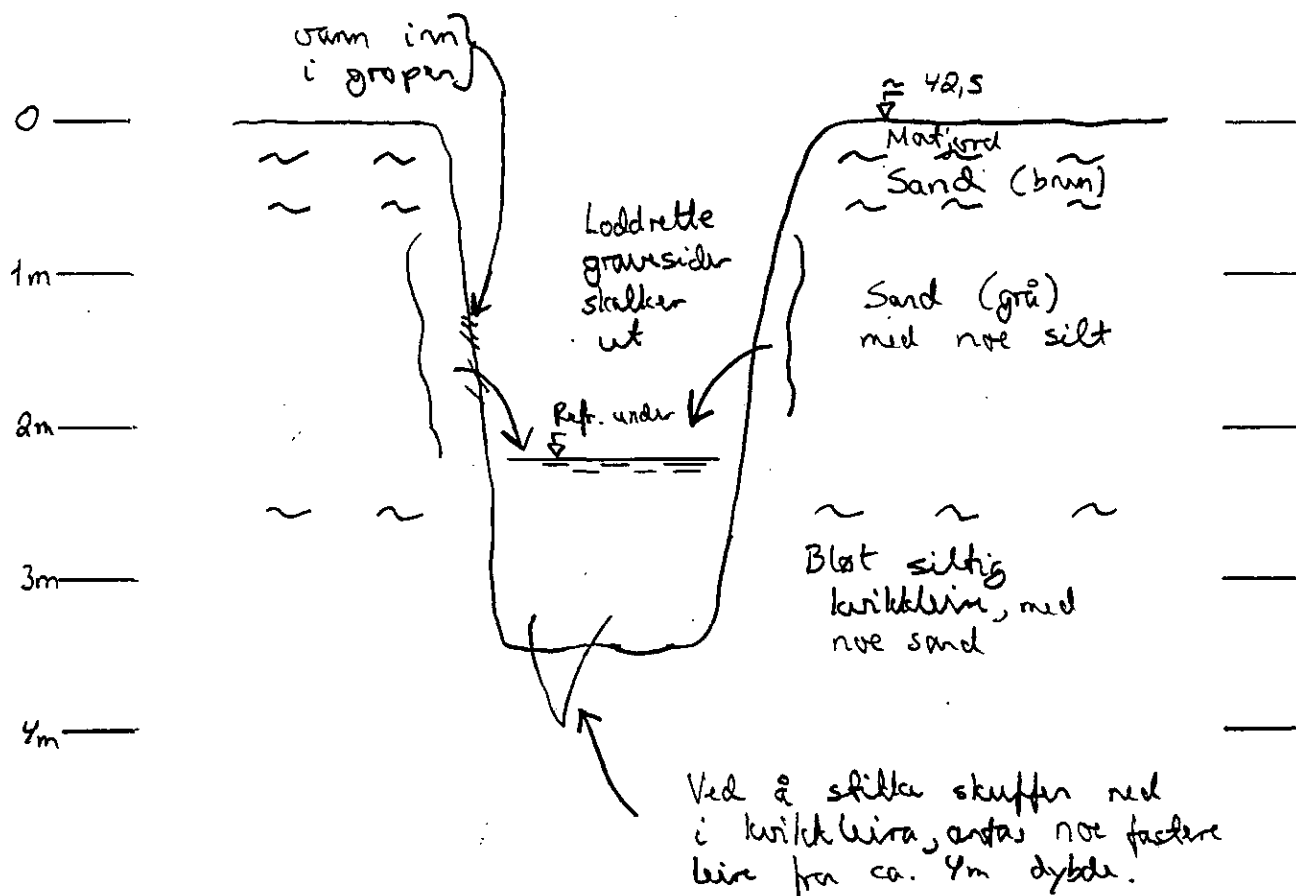 vann inn
i gropen
≈ 42,5
0
Matjord
Sand (brun)
Loddrette
gravesider
skalker
ut
1m
Sand (grå)
med noe silt
2m
Refr. under
3m
Bløt siltig
kvikkleire, med
noe sand
4m
Ved å stikke skuffen ned
i kvikkleira, antas noe fastere
leire fra ca. 4m dybde.